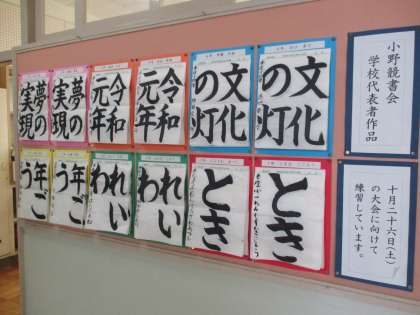 小野競書会
学校代表者作品
文化
の灯
文化
の灯
令和
元年
令和
元年
夢の
実現
夢の
実現
十月二十六日(土)
の大会に向けて
練習しています。
とき
とき
れい
わ
れい
わ
年ご
う
年ご
う